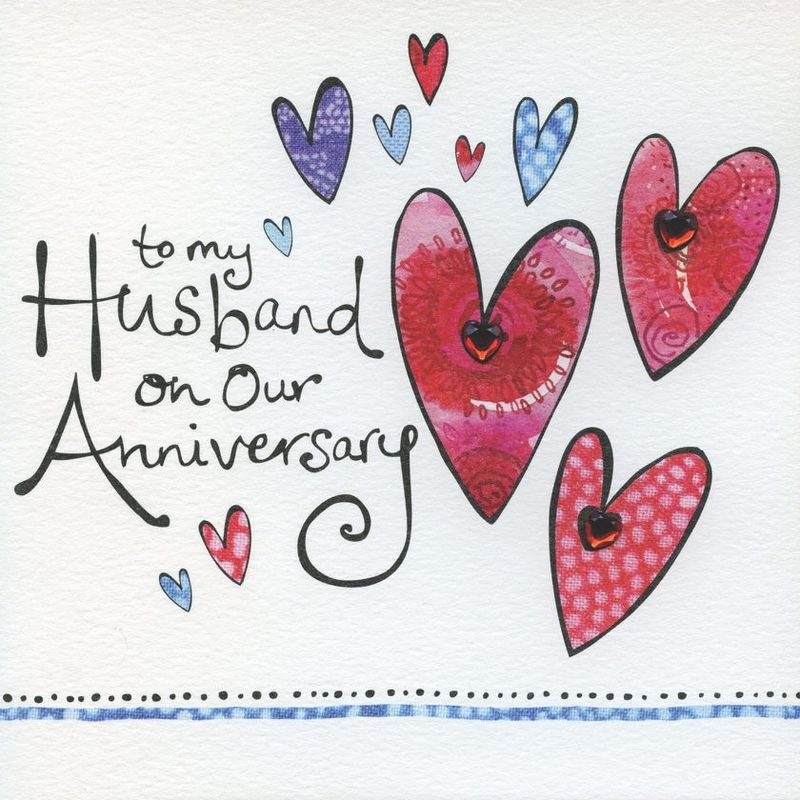 to my
Husband
on Our
Anniversary